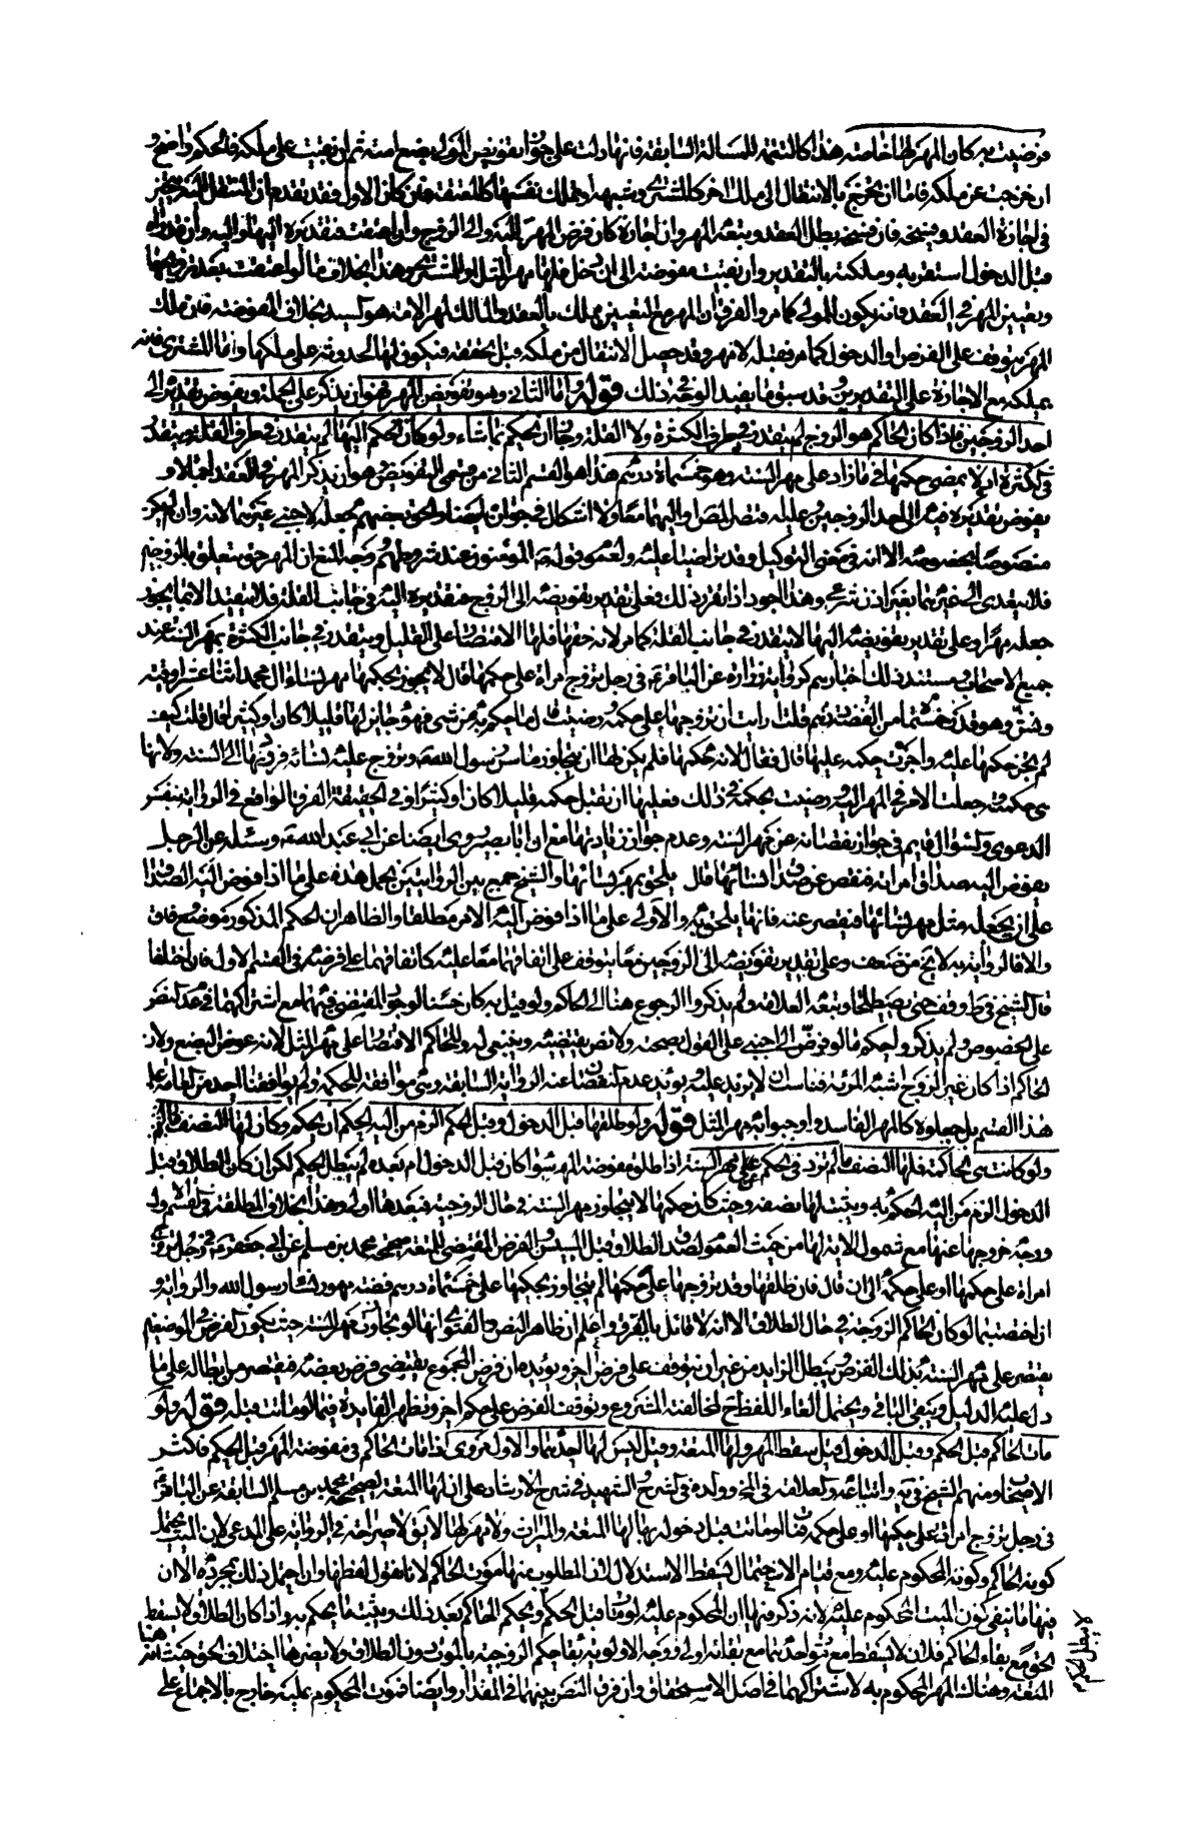 فرضيت به كان المهر لها خاصة هذا كالتتمة للمسألة السابقة فانها دلت على جواز تفويض المولى بضع امته ثم ان بقيت على ملكه فالحكم واضح و
ان خرجت عن ملكه فاما ان يخرج بالانتقال الى ملك اخر كالمشترى وشبهه او تملك نفسها كالمعتقة فان كان الاول فقد تقدم ان المنتقل اليه يتخير
فى اجازة العقد وفسخه فان فسخه بطل العقد وتبعه المهر وان اجازه كان فرض المهر اليه والى الزوج وان اعتقت فتقديره اليها او اليه وان قدراه
قبل الدخول استقر به وملكته بالتقدير وان بقيت مفوضة الى ان دخل فلها مهر المثل او للمشترى وهذا بخلاف ما لو اعتقت بعد تزويجها
وتعيين المهر فى العقد فانه يكون للمولى كما مر والفرق ان المهر مع التعيين يملك بالعقد والمالك لمهر الامة هو السيد بخلاف المفوضة فان ملك
المهر يتوقف على الفرض او الدخول كما مر فقبله لا مهر وقد حصل الانتقال من ملكه قبل تحققه فيكون لها لحدوثه على ملكها واما المشترى فانه
يملكه مع الاجازة على التقديرين وقد سبق ما يفيد الوجه فى ذلك قوله واما الثانى وهو تفويض المهر فهو ان يذكر على الجملة ويفوض تقديره الى
احد الزوجين فاذا كان الحاكم هو الزوج لم يتقدر فى طرف الكثرة ولا القلة وجاز ان يحكم بما شاء ولو كان الحكم اليها لم يتقدر فى طرف القلة ويتقدر
فى الكثرة اذ لا يمضى حكمها فى ما زاد على مهر السنة وهو خمسمأة درهم هذا هو القسم الثانى من قسمى التفويض هو ان يذكر المهر فى العقد اجمالا و
يفوض تقديره فيه الى احد الزوجين وعليه فتصل النص او اليهما معا ولا اشكال فى جوازه ايضا والحق بعضهم جعله لاجنبى غيرهما لانه وان لم يكن
منصوصا بخصوصه الا انه فى معنى التوكيل وقد تراضيا عليه ولعموم قوله المؤمنون عند شروطهم ووجه المنع ان المهر حق يتعلق بالزوجين
فلا يتعدى الى غيرهما بغير اذن شرعى وهذا اجود اذا تقرر ذلك فعلى تقدير تفويضه الى الزوج فتقديره اليه فى جانب القلة فلا يتقيد الا بما يجوز
جعله مهرا وعلى تقدير تفويضه اليها لا يتقدر فى جانب القلة كما مر لانه حقها فلها الاقتصار على القليل ويتقدر فى جانب الكثرة بمهر السنة عند
جميع الاصحاب ومستند ذلك اخبارهم كرواية زرارة عن الباقر فى رجل تزوج امرأة على حكمها قال لا يجوز بحكمها مهر نساء ال محمد اثنتا عشرة اوقية
ونش وهو وزن خمسمأة من الفضة درهم قلت ارايت ان تزوجها على حكمه ورضيت قال ما حكم به من شئ فهو جائز لها قليلا كان او كثيرا قال قلت كيف
لم يجز حكمها عليه واجزت حكمه عليها قال فقال لانه حكمها فلم يكن لها ان تجاوز ما سن رسول الله وتزوج عليه نسائه فرددتها الى السنة ولانها
هى حكمته وجعلت الامر فى المهر اليه ورضيت بحكمه فى ذلك فعليها ان تقبل حكمه قليلا كان او كثيرا وفى الحقيقة الفرق الواقع فى الرواية بنفس
الدعوى والسؤال قايم فى جواز نقصانه عن مهر السنة وعدم جواز زيادتها مع ان ابا بصير روى ايضا عن ابى عبد الله وسئله عن الرجل
يفوض اليه صداق امرأته فنقص عن صداق نسائها قال يلحق بمهر نسائها والشيخ جمع بين الروايتين بحمل هذه على ما اذا فوض اليه الصداق
على ان يجعله مثل مهر نسائها فيقصر عنه فانها يلحق به والاولى على ما اذا فوض اليه الامر مطلقا والظاهر ان الحكم المذكور موضع وفاق
والا فالرواية به لا يخ من ضعف وعلى تقدير تفويضه الى الزوجين معا يتوقف على اتفاقهما معا عليه كاتفاقهما على فرضه فى القسم الاول فان اختلفا
قال الشيخ فى ط وقف حتى يصطلحا وتبعه العلامة ولم يذكروا الرجوع هنا الى الحاكم ولو قيل به كان حسنا لوجود المقتضى فيهما مع اشتراكهما فى عدم النص
على الخصوص ولم يذكروا حكم ما لو فوض الى اجنبى على القول بصحته ولا نص يقتضيه وينبغى له وللحاكم الاقتصار على مهر المثل لانه عوض البضع ولان
الحاكم اذا كان غير الزوج اشبه المرئة فناسب ان لا يزيد عليه ويؤيد عدم النقصان عنه الرواية السابقة وهى موافقة للحكمة ولم يوافقنا احد من العامة على
هذا القسم بل جعلوه كالمهر الفاسد واوجبوا به مهر المثل قوله ولو طلقها قبل الدخول وقبل الحكم الزم من اليه الحكم ان يحكم وكان لها النصف
ولو كانت هى الحاكمة فلها النصف ما لم تزد فى الحكم على مهر السنة اذا طلق مفوضة المهر سواء كان قبل الدخول ام بعده لم يبطل الحكم لكن ان كان الطلاق قبل
الدخول الزم من اليه الحكم به ويثبت لها نصفه وحيث كان حكمها لا يتجاوز مهر السنة فى حال الزوجية فبعدها اولى وهذا بخلاف المطلقة فى القسم الاول
ووجه خروجها عنها مع شمول الاية لها من حيث العموم لصدق الطلاق قبل المسيس والفرض المقتضى للمتعة صحيحة محمد بن مسلم عن ابى جعفر فى رجل تزوج
امرأة على حكمها او على حكمه الى ان قال فان طلقها وقد تزوجها على حكمها لم يتجاوز بحكمها على خمسمأة درهم فضة مهور نساء رسول الله والرواية و
ان اختصت بما لو كان الحاكم الزوجة فى حال الطلاق الا انه لا قائل بالفرق واعلم ان ظاهر النص والفتوى انها لو تجاوزت مهر السنة حيث يكون الفرض اليها
يقتصر على مهر السنة بذلك الفرض ويبطل الزايد من غير ان يتوقف على فرض اخر ويؤيده ان فرض المجموع يقتضى فرض بعضه فيقتصر من ابطاله على ما
دل عليه الدليل ويبقى الباقى ويحتمل الغاء اللفظ لمخالفته المشروع وتوقف الفرض على حكم اخر وتظهر الفايدة فيما لو ماتت قبله قوله ولو
مات الحاكم قبل الحكم وقبل الدخول قيل سقط المهر ولها المتعة وقيل ليس لها احدهما والاول مروى اذا مات الحاكم فى مفوضة المهر قبل الحكم فاكثر
الاصحاب ومنهم الشيخ فى يه واتباعه والعلامة فى المخ وولده فى الشرح والشهيد فى شرح الارشاد على ان لها المتعة لصحيحة محمد بن مسلم السابقة عن الباقر
فى رجل تزوج امرأة على حكمها او على حكمه فمات او ماتت قبل دخوله بها لها المتعة والميراث ولا مهر لها لا يق لا صراحة فى الرواية على المدعى لان الميت يحتمل
كونه الحاكم وكونه المحكوم عليه ومع قيام الاحتمال يسقط الاستدلال اذ المطلوب منها موت الحاكم لانا نقول لفظها وان احتمل ذلك بمجرده الا ان
فيها ما ينفى كون الميت المحكوم عليه لانه ذكر فيها ان المحكوم عليه لو مات قبل الحكم ويحكم الحاكم بعد ذلك ويثبت ما يحكم به واذا كان الطلاق لا يسقط
الحق مع بقاء الحاكم فلان لا يسقط مع موت احدهما مع بقائه اولى ووجه الاولوية بقاء حكم الزوجية بالموت دون الطلاق ولا يضرها اختلاف الحق حيث انه هنا
المتعة وهناك المهر المحكوم به لاشتراكهما فى اصل الاستحقاق وان فرق النص بينهما فى المقدار وايضا فموت المحكوم عليه خارج بالاجماع على
لا يبطل الحكم